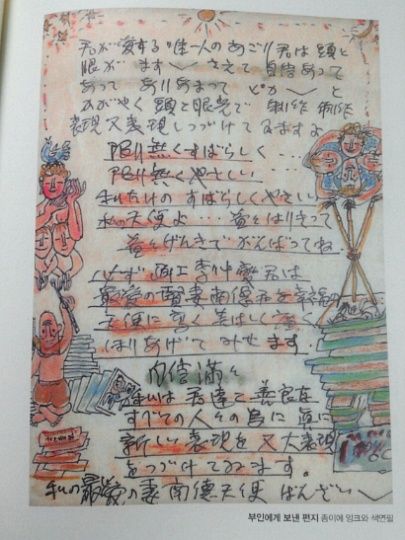 君が愛する唯一人のあごり君は頭と
眼がますます〜さえて 自信あって
あって ありあまって ピカ〜〜と
かがやく 頭と眼光で 制作 制作
表現又表現しつづけてゐますよ
限り無くすばらしく・・・
限り無くやさしい
私だけの すばらしくやさしい
私の天使よ・・・益々はりきって
益々げんきで がんばってね
画工李仲燮君は
最愛の賢妻南徳 を幸福の
天使に 高く 美はしく 
ほりあげて みせます
自信満々
は君達と 善良な
すべての人々の為に 真に
新しい表現を 又 大表現
をつづけてゐます。
私の最愛の妻南徳天使 ばんざい〜
부인에게 보낸 편지 종이에 잉크와 색연필